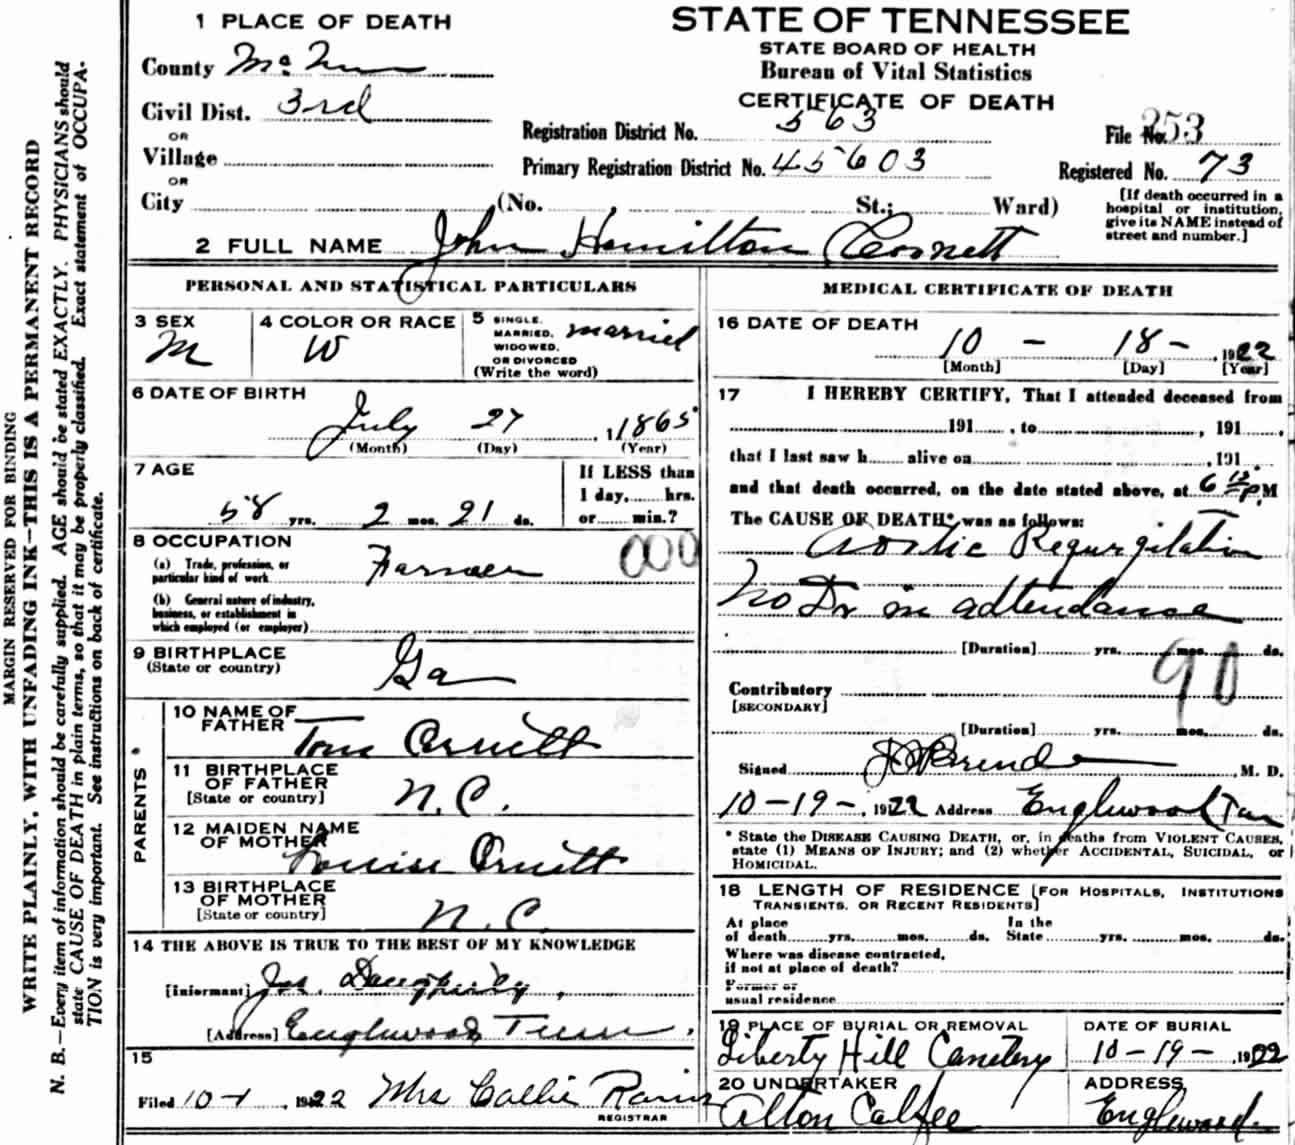 MARGIN RESERVED FOR BINDING
WRITE PLAINLY, WITH UNFADING INK—THIS IS A PERMANENT RECORD
N. B.—Every item of information should be carefully supplied. AGE should be stated EXACTLY. PHYSICIANS should
state CAUSE OF DEATH in plain terms, so that it may be properly classified. Exact statement of OCCUPA-
TION is very important. See instructions on back of certificate.
STATE OF TENNESSEE
STATE BOARD OF HEALTH
Bureau of Vital Statistics
CERTIFICATE OF DEATH
1 PLACE OF DEATH
County Mc
Civil Dist. 3rd
OR
Village
OR
City (No. St.; Ward)
Registration District No. 563
File No. 353
Primary Registration District No. 45603
Registered No. 73
[If death occurred in a
hospital or institution,
give its NAME instead of
street and number.]
2 FULL NAME John Hamilton Cornett
PERSONAL AND STATISTICAL PARTICULARS
3 SEX
M
4 COLOR OR RACE
W
5 SINGLE,
MARRIED,
WIDOWED,
OR DIVORCED
(Write the word)
married
6 DATE OF BIRTH
July 27, 1865
(Month) (Day) (Year)
7 AGE
58 yrs. 2 mos. 21 ds.
If LESS than
1 day, hrs.
or min.?
8 OCCUPATION
(a) Trade, profession, or
particular kind of work
Farmer
000
(b) General nature of industry,
business, or establishment in
which employed (or employer)
9 BIRTHPLACE
(State or country)
Ga
PARENTS
10 NAME OF
FATHER
Tom Cornett
11 BIRTHPLACE
OF FATHER
[State or country]
N.C.
12 MAIDEN NAME
OF MOTHER
Louise Cruett
13 BIRTHPLACE
OF MOTHER
[State or country]
N.C.
14 THE ABOVE IS TRUE TO THE BEST OF MY KNOWLEDGE
[Informant] Jos. Daugherty,
[Address] Englewood Tenn.
15
Filed 10-1, 1922 Mrs Callie Rains
REGISTRAR
MEDICAL CERTIFICATE OF DEATH
16 DATE OF DEATH
10 - 18 -, 1922
[Month] [Day] [Year]
17 I HEREBY CERTIFY, That I attended deceased from
191 , to , 191 ,
that I last saw h alive on , 191
and that death occurred, on the date stated above, at 6 15 P M
The CAUSE OF DEATH* was as follows:
Aortic Regurgitation
No Dr in attendance
[Duration] yrs. mos. ds.
90
Contributory
[SECONDARY]
[Duration] yrs. mos. ds.
Signed , M. D.
10-19-, 1922 Address Englewood Ten
* State the DISEASE CAUSING DEATH, or, in deaths from VIOLENT CAUSES,
state (1) MEANS OF INJURY; and (2) whether ACCIDENTAL, SUICIDAL, or
HOMICIDAL.
18 LENGTH OF RESIDENCE [FOR HOSPITALS, INSTITUTIONS
TRANSIENTS, OR RECENT RESIDENTS]
At place
of death yrs. mos. ds.
In the
State yrs. mos. ds.
Where was disease contracted,
if not at place of death?
Former or
usual residence
19 PLACE OF BURIAL OR REMOVAL
Liberty Hill Cemetery
DATE OF BURIAL
10-19-, 1922
20 UNDERTAKER
Alton Calfee
ADDRESS
Englewood